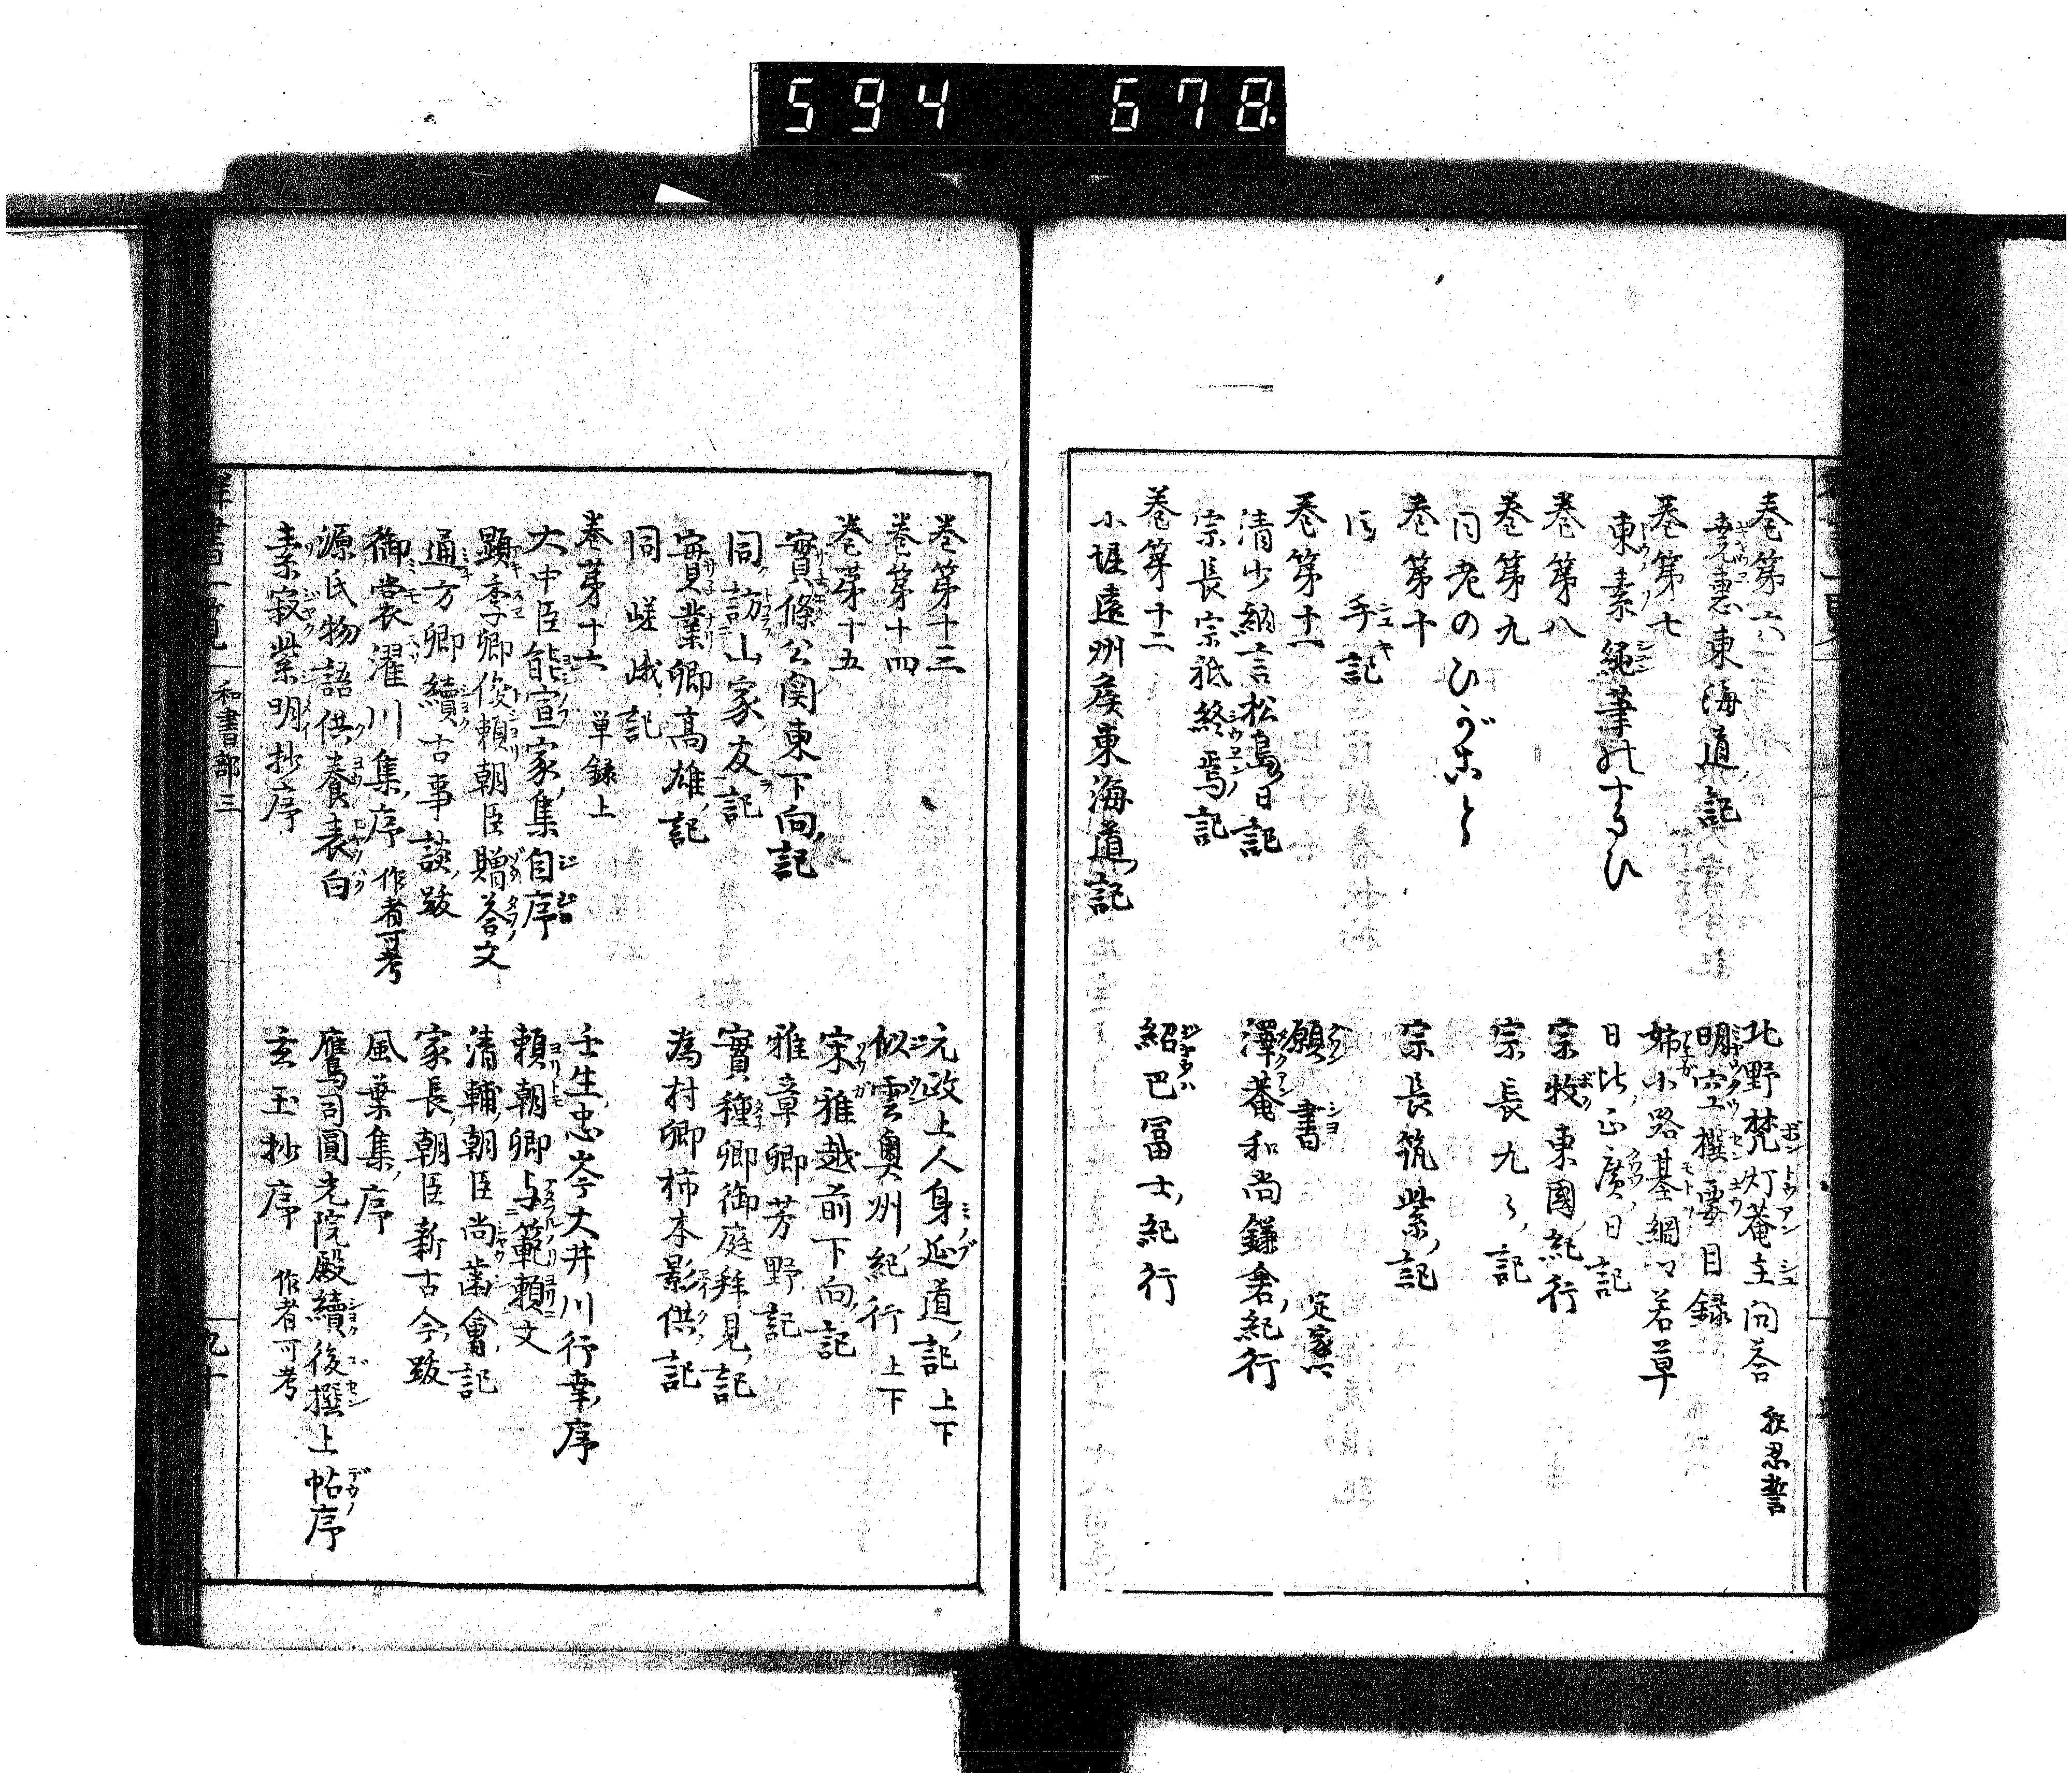 594 678.
巻第六
北野梵灯菴主問荅
尭恵東海道記
明空撰要目録
巻第七
姉小路基綱卿若草
東素純筆のすさひ
日比正廣日記
巻第八
宗牧東國紀行
巻第九
宗長九〻記
同老のひがこと
巻第十
宗長筑紫記
同 手記
巻第十一
願書 定家卿
清少納言松島日記
澤菴和尚鎌倉紀行
宗長宗祇終焉記
巻第十二
紹巴冨士紀行
小堀遠州矦東海道記
巻第十三
元政上人身延道記 上下
巻第十四
似雲奥州紀行 上下
巻第十五
宋雅越前下向記
實條公関東下向記
雅章卿芳野記
同訪山家友記
實種卿御庭拜見記
實業卿高雄記
為村卿柿本影供記
同嵯峨記
巻第十六 単録上
壬生忠岑大井川行幸序
大中臣能宣家集自序
頼朝卿与範頼文
顕季卿俊頼朝臣贈荅文
清輔朝臣尚歯會記
通方卿續古事談跋
家長朝臣新古今跋
御裳濯川集序 作者可考
風葉集序
源氏物語供養表白
鷹司圓光院殿續後撰上帖序
素寂紫明抄序
玄玉抄序 作者可考
和書部三